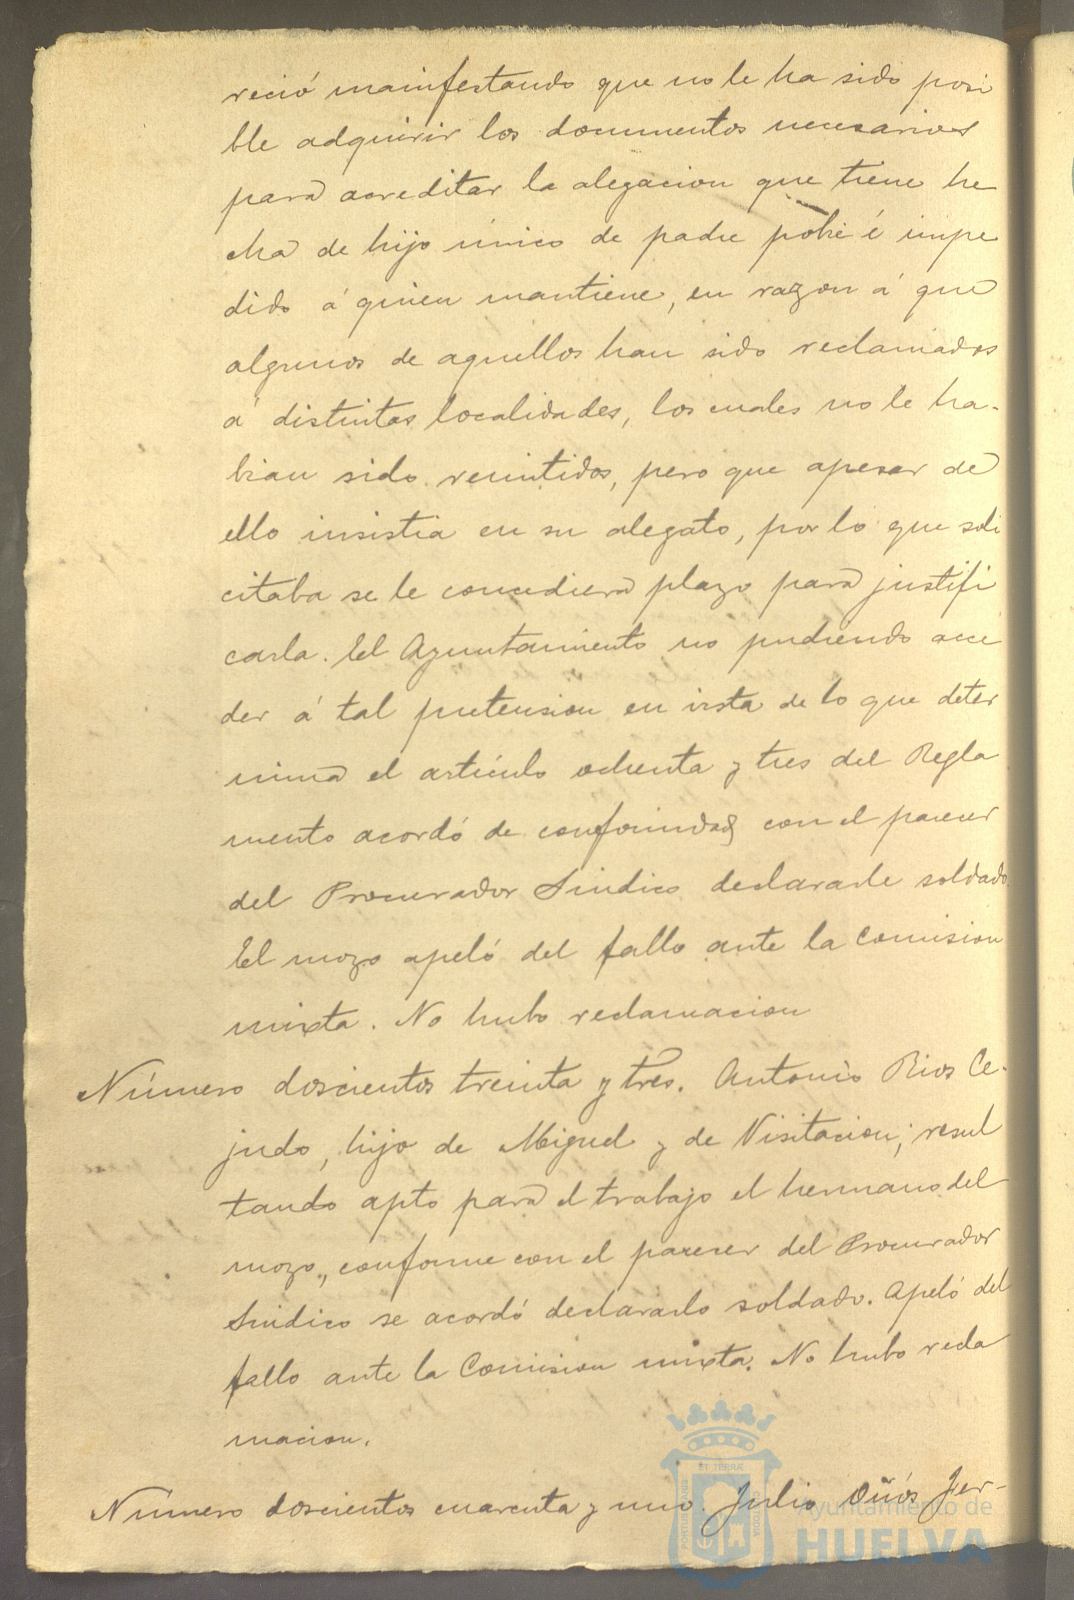 reció manifestando que no le ha sido posi
ble adquirir los documentos necesarios
para acreditar la alegacion que tiene he
cha de hijo único de padre pobre é impe
dido á quien mantiene, en razon á que
algunos de aquellos han sido reclamados
á distintas localidades, los cuales no le ha-
bian sido remitidos, pero que apesar de
ello insistia en su alegato, por lo que soli
citaba se le concediera plazo para justifi
carla. El Ayuntamiento no pudiendo acce
der á tal pretension en vista de lo que deter
mina el artículo ochenta y tres del Regla
mento acordó de conformidad con el parecer
del Procurador Sindico declararle soldado.
El mozo apeló del fallo ante la Comision
mixta. No hubo reclamacion
Número doscientos treinta y tres. Antonio Rios Ce-
judo, hijo de Miguel y de Visitacion; resul
tando apto para el trabajo el hermano del
mozo, conforme con el parecer del Procurador
Sindico se acordó declararlo soldado. Apeló del
fallo ante la Comision mixta. No hubo recla
macion.
Número doscientos cuarenta y uno. Julio Jer-
Ayuntamiento de
HUELVA